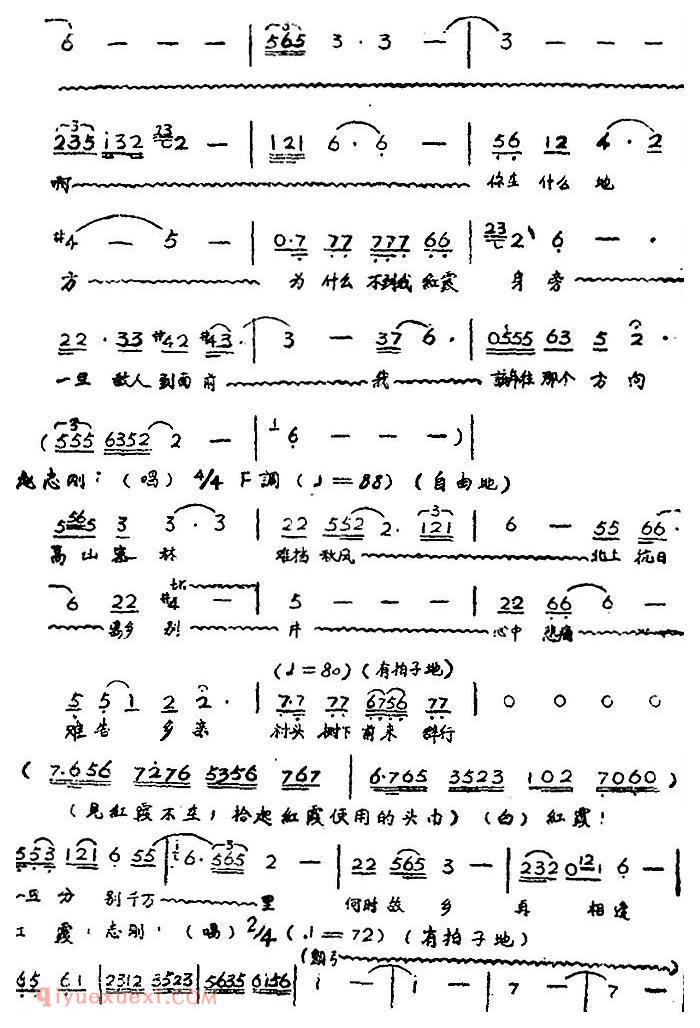 6 — — — | 565 3 · 3 — | 3 — — —
235 i32 2 — | 121 6 · 6 — | 56 12 4 · 2
啊 你在 什么 地
#4 — 5 — | 0·7 77 777 66 | 2 6 — ·
方 为 什么 不到我 紅霞 身 旁
22 · 33 #42 #43 · | 3 — 37 6 · | 0555 63 5 2 ·
一旦 敌人 到面 前 我 就往 那个 方 向
( 555 6352 2 — | 6 — — — )
志刚:(唱) 4/4 下調 (♩=88) (自由地)
5565 3 3 · 3 | 22 552 2 · 121 | 6 — 55 66 ·
高 山 寒 林 难挡 秋风 北上 抗日
6 22 #4 — | 5 — — — | 22 66 6 —
离乡 别 井 心中 悲痛
(♩=80) (有拍子地)
5 5 1 2 2 · | 7·7 77 6756 77 | 0 0 0 0
难 告 乡 亲 村头 树下 前来 辞行
( 7·656 7276 5356 767 | 6·765 3523 102 7060 )
(见紅霞不在,拾起紅霞使用的头巾) (白) 紅霞!
5553 121 6 55 | 6 · 565 2 — | 22 565 3 — | 232 0121 6 —
一旦 分 别 千万 里 何时 故 乡 再 相逢
霞,志刚:(唱) 2/4 (♩=72) (有拍子地)
65 61 | 2312 3523 | 5635 6i56 | i — | i — | 7 — | 7 —
qiyuexuexi.com